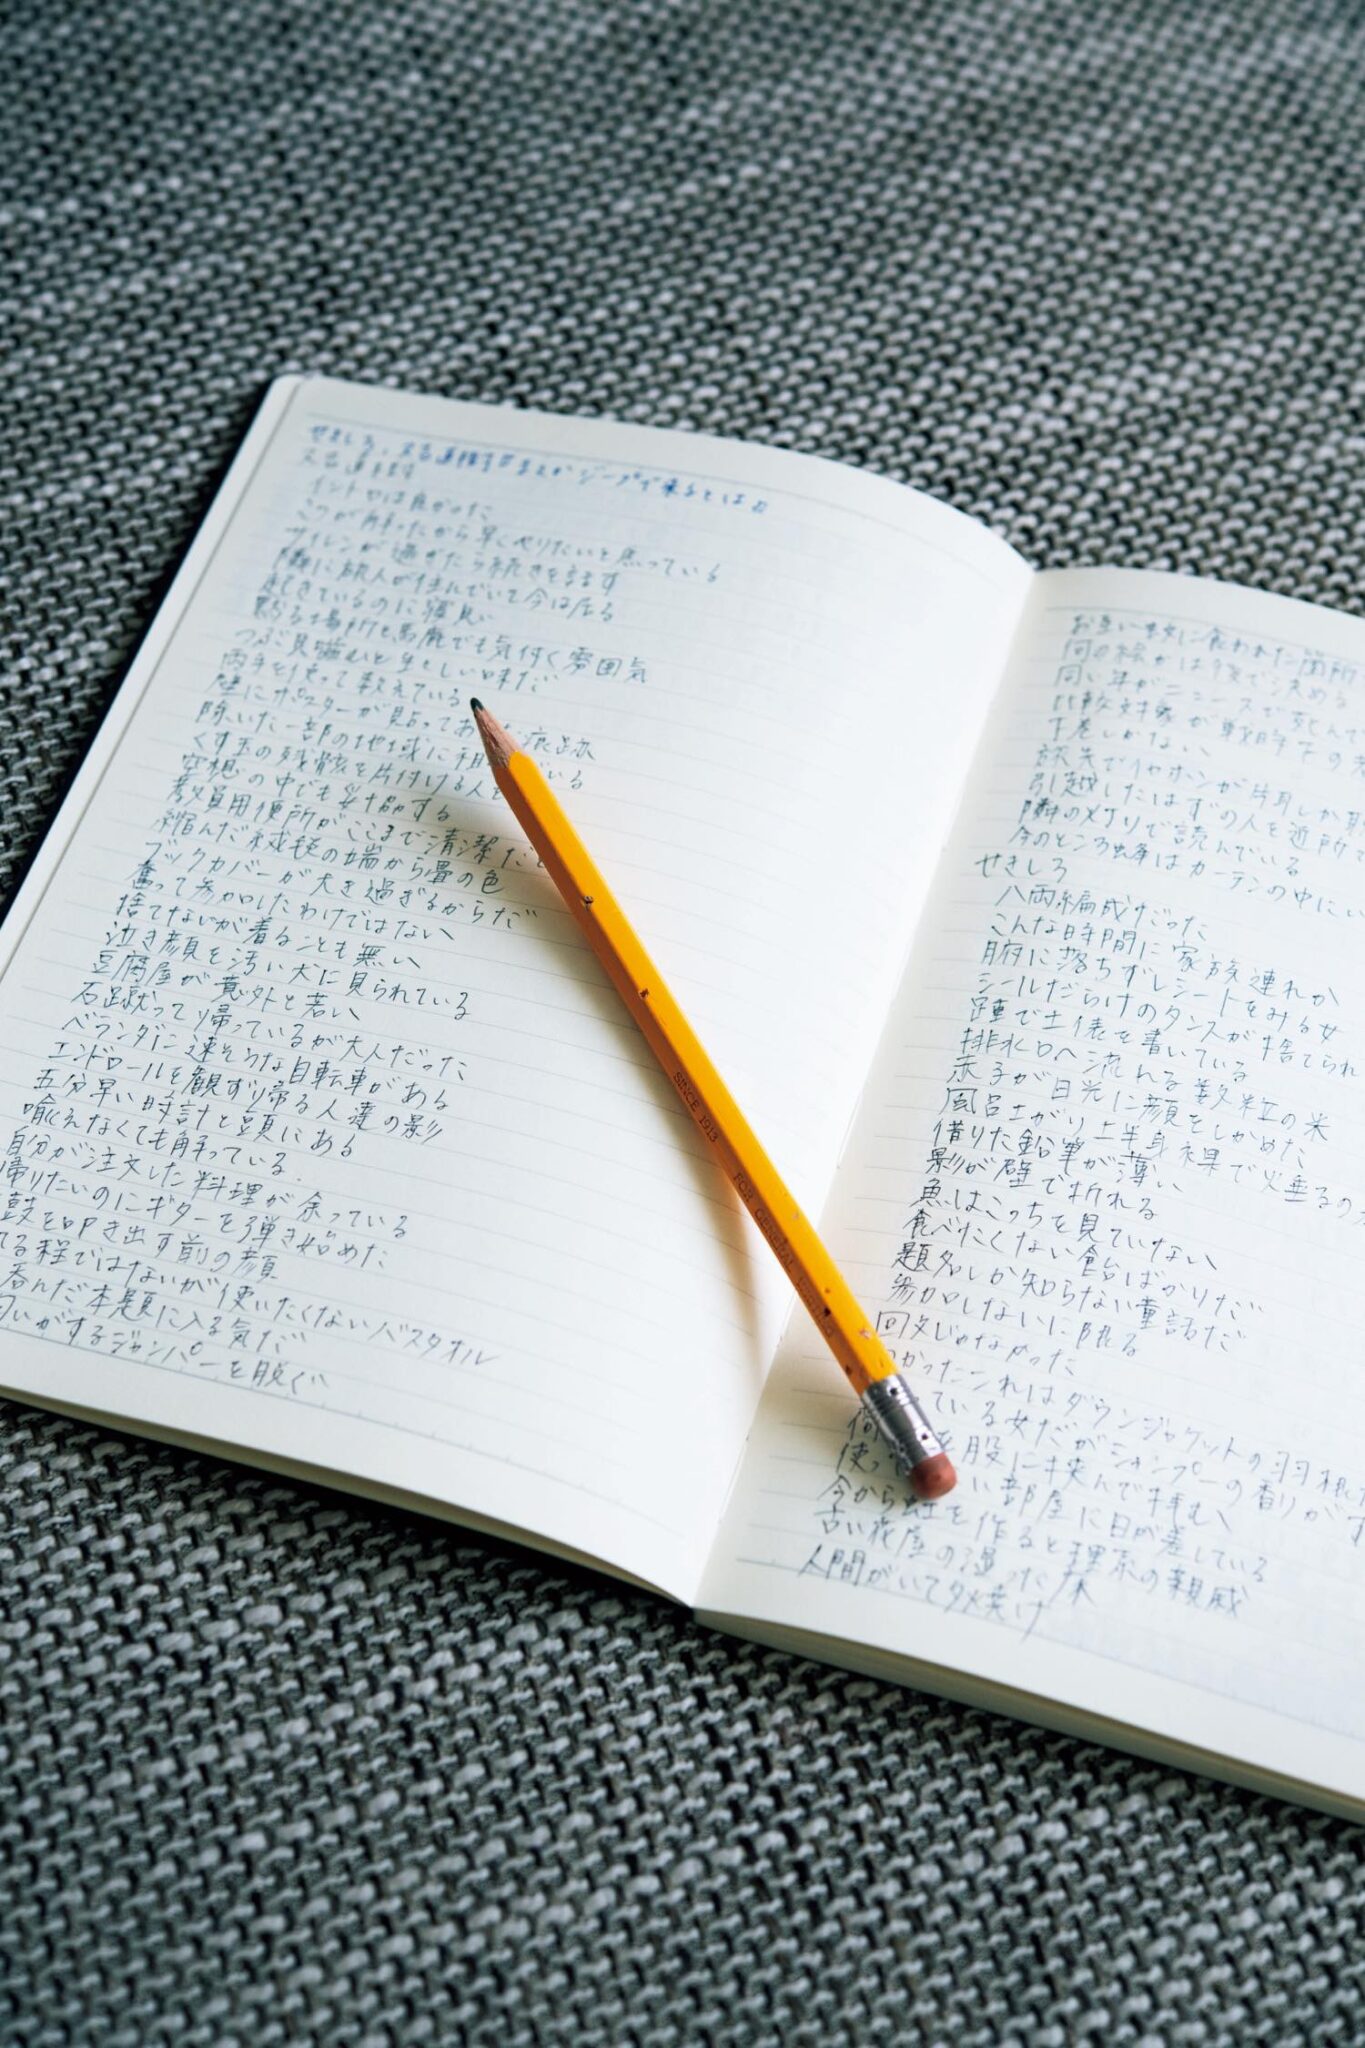 せきしろ、又吉直樹『まさかジープで来るとは』
又吉直樹
イントロは良かった
こつが解ったから早くやりたいと焦っている
サイレンが過ぎたら続きを話す
隣に旅人が住んでいて今は居る
起きているのに寝息
黙る場所と馬鹿でも気付く雰囲気
つぶ貝噛むと生々しい味だ
両手を使って数えている
壁にポスターが貼ってあった痕跡
除いた一部の地域に
くす玉の残骸を片付ける人を ている
空想の中でも妥協する
教員用便所がここまで清潔だと
縮んだ絨毯の端から畳の色
ブックカバーが大き過ぎるからだ
奮って参加したわけではない
捨てないが着ることも無い
泣き顔を汚い犬に見られている
豆腐屋が意外と若い
石蹴って帰っているが大人だった
ベランダに速そうな自転車がある
エンドロールを観ず帰る人達の影
五分早い時計と頭にある
喩えなくても解っている
自分が注文した料理が余っている
帰りたいのにギターを弾き始めた
鼓を叩き出す前の顔
てる程ではないが使いたくないバスタオル
呑んだ本題に入る気だ
匂いがするジャンパーを脱ぐ
お互い蚊に食われた箇所
何の絵かは後で決める
同い年がニュースで死んで
比較対象が戦時下の
下巻しかない
旅先でイヤホンが片耳しか
引越したはずの人を近所で
隣の灯りで読んでいる
今のところ蜂はカーテンの中にい
せきしろ
八両編成だった
こんな時間に家族連れか
腑に落ちずレシートをみる女
シールだらけのタンスが捨てられ
踵で土俵を書いている
排水口へ流れる数粒の米
赤子が日光に顔をしかめた
風呂上がり上半身裸で火垂るの
借りた鉛筆が薄い
影が壁で折れる
魚はこっちを見ていない
食べたくない飴ばかりだ
題名しか知らない童話だ
参加しないに限る
回文じゃなかった
かったこれはダウンジャケットの羽根
ている女だがシャンプーの香りがす
を股に挟んで拝む
使っ い部屋に日が差している
今から虹を作ると理系の親戚
古い花屋の湿った床
人間がいて夕焼け
SINCE 1913
FOR GENERAL